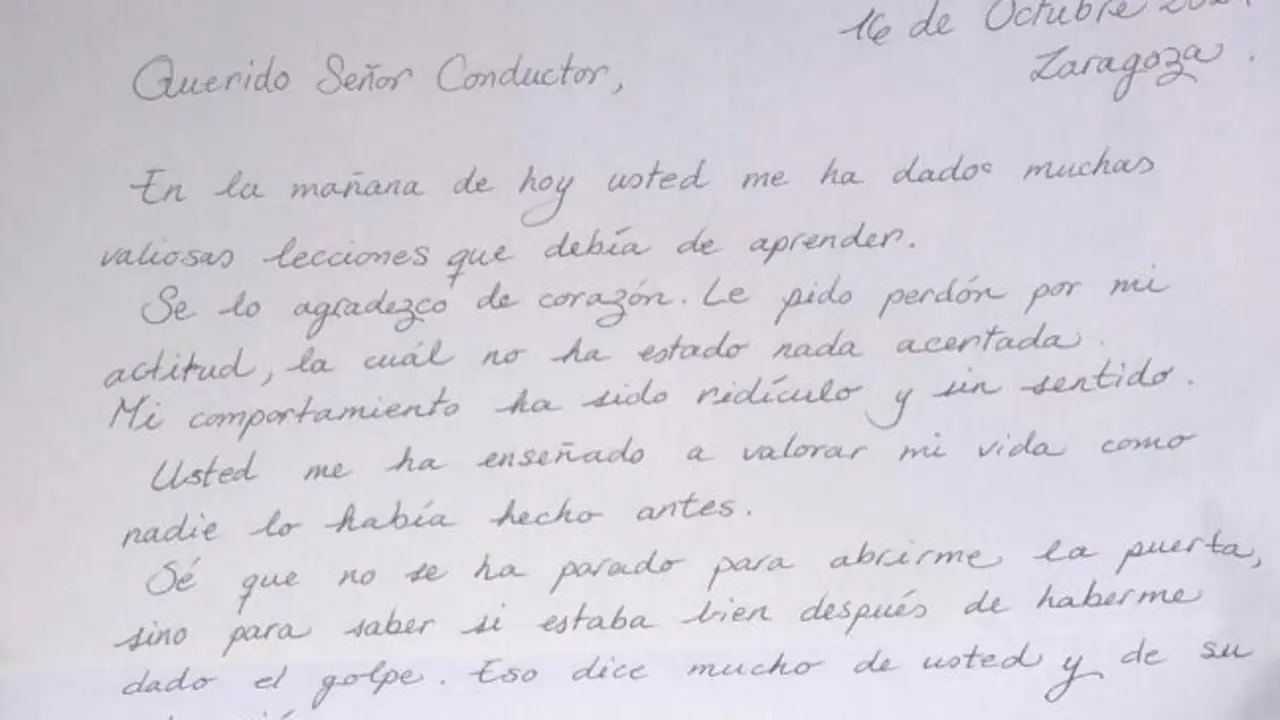 16 de Octubre
Zaragoza.
Querido Señor Conductor,
En la mañana de hoy usted me ha dado muchas
valiosas lecciones que debía de aprender.
Se lo agradezco de corazón. Le pido perdón por mi
actitud, la cuál no ha estado nada acertada.
Mi comportamiento ha sido ridículo y sin sentido.
Usted me ha enseñado a valorar mi vida como
nadie lo había hecho antes.
Sé que no se ha parado para abrirme la puerta,
sino para saber si estaba bien después de haberme
dado el golpe. Eso dice mucho de usted y de su